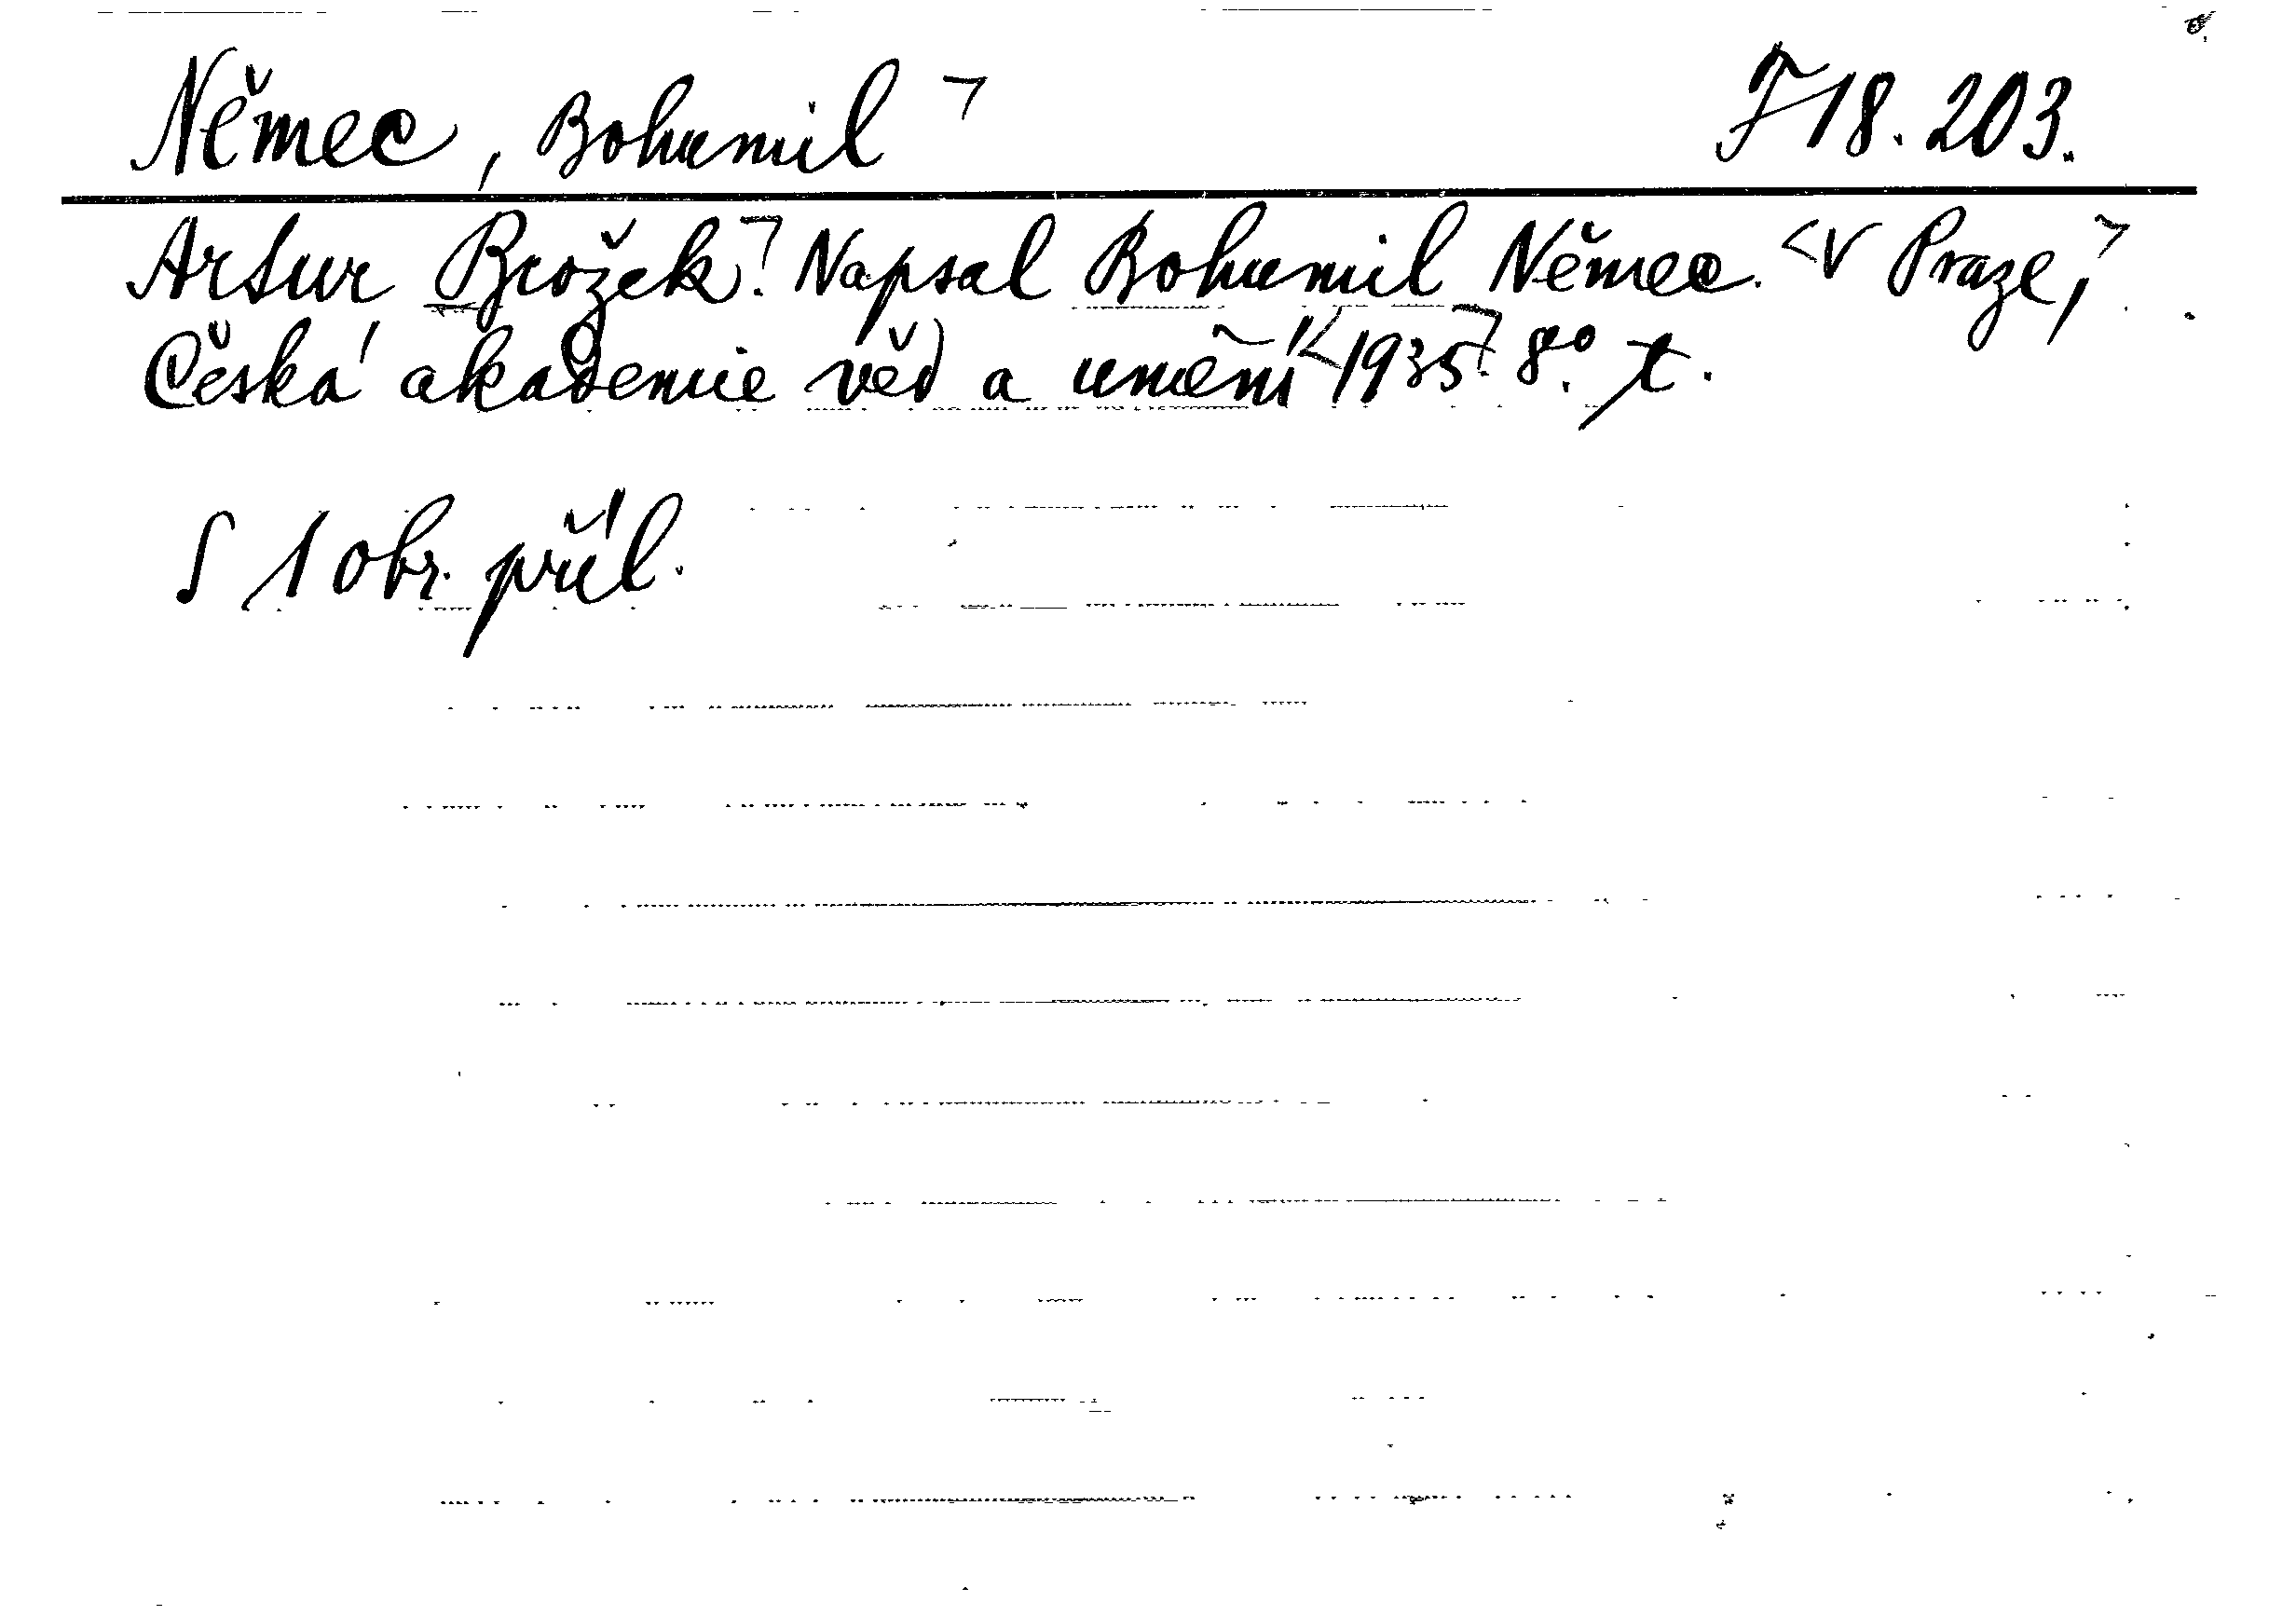 Němec, Bohumil ¬ J 18.203.
Artur Brožek.¬ Napsal Bohumil Němec. <V Praze,>
Česká akademie věd a umění <1935.¬ 8°. t.
S 1 obr. příl.